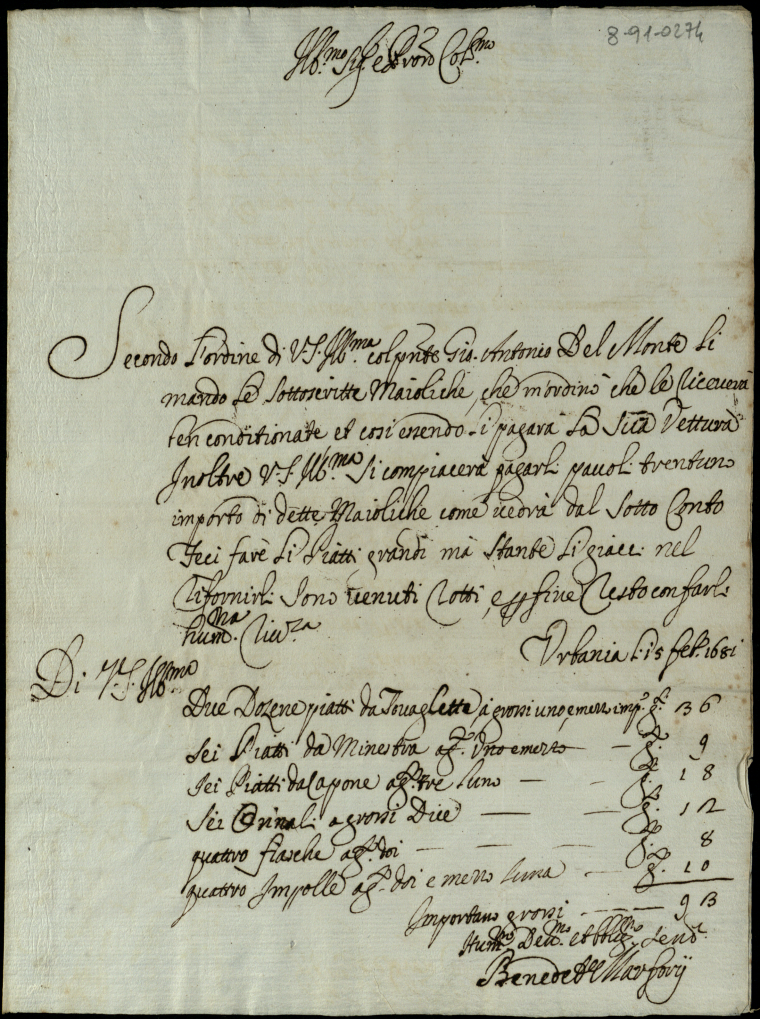 8-91-0274
Ill.mo Sig.r e Pron Col.mo
Secondo l'ordine di V.S. Ill.ma col pnte Gio. Antonio Del Monte li
mando le sottoscritte Maioliche, che m'ordinò che le riceverà
ben conditionate et così essendo li pagarà la sua Vettura
Inoltre V.S. Ill.ma si compiacerà pagarli pauoli trentuno
importo di dette Maioliche come vedrà dal sotto Conto
Feci fare li Piatti grandi mà stante li giacci nel
rifornirli sono venuti rotti, e p fine resto con farli
hum.ma riu.za
Urbania li 15 feb. 1681
Di V.S. Ill.ma
Due Dozene piatti da Tovaglette à grossi uno, e mezzo imp.o g. 36
Sei Piatti da Minestra a g. uno e mezzo — g. 9
Sei Piatti da Capone a g. tre l'uno — — g. 18
Sei Orinali a grossi Due — — g. 12
quattro fiasche a g. doi — — — g. 8
quattro Impolle a g. doi e mezzo l'una — g. 10
Importano grossi — — 93
Hum.o Dev.mo et obblig.mo Serv.
Benedetto Marforij